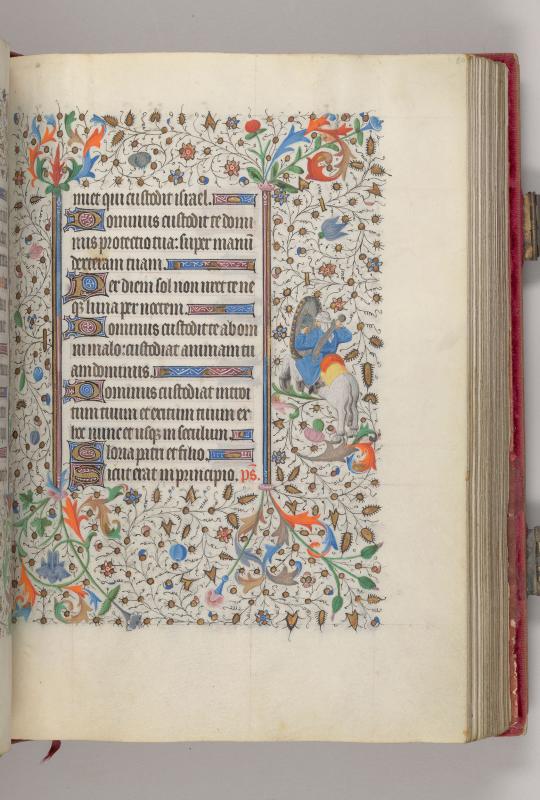 miet qui custodit israel.
Dominus custodit te domi
nus protectio tua: super manū
dexteram tuam.
Per diem sol non uret te ne
q̄ luna per noctem.
Dominus custodit te ab om
ni malo: custodiat animam tu
am dominus.
Dominus custodiat introi
tum tuum et exitum tuum ex
hoc nunc et usq̄ in seculum.
Gloria patri et filio.
Sicut erat in principio. p̄s.